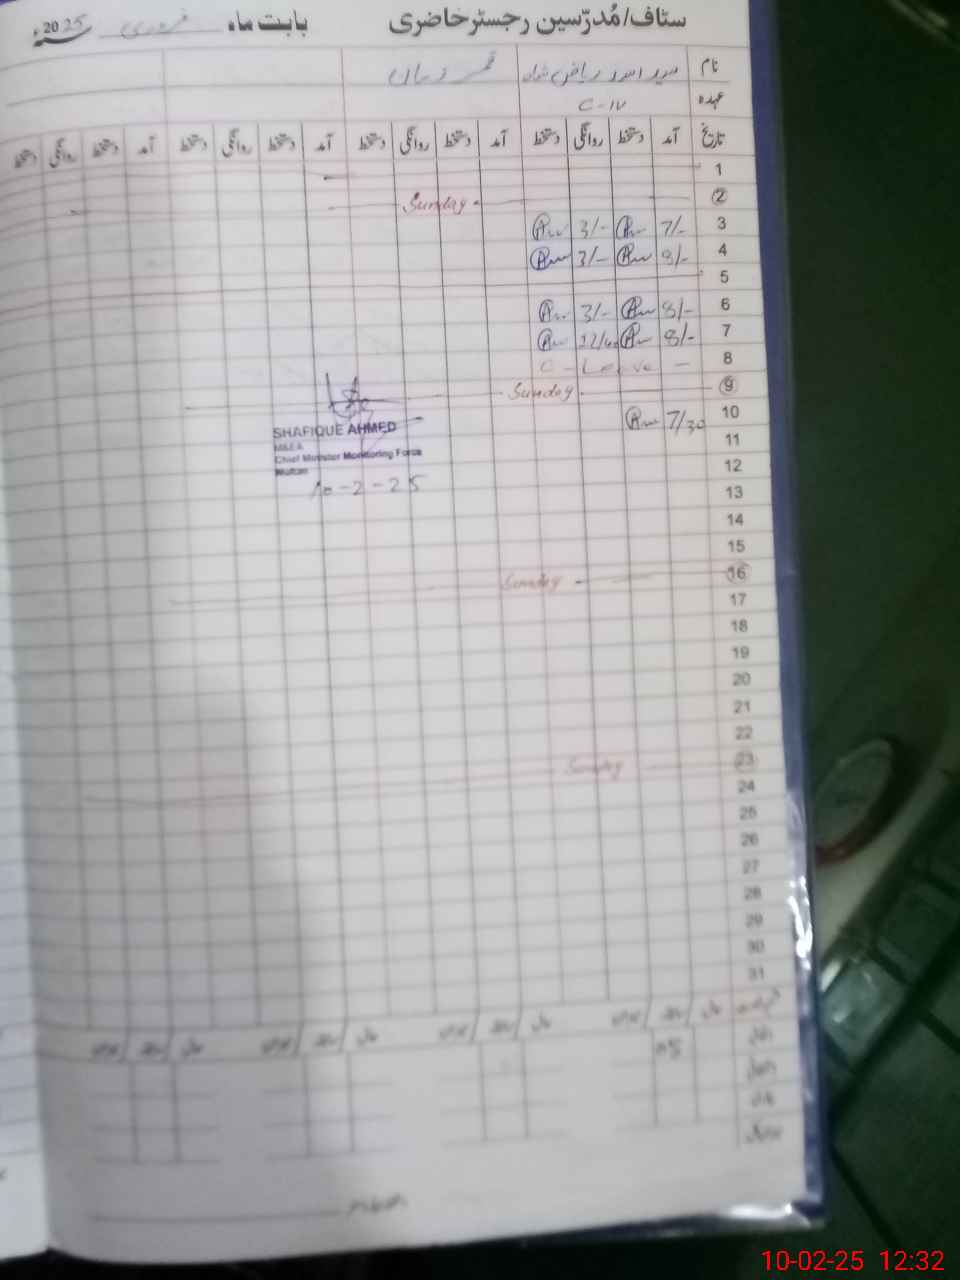 سٹاف/مُدرّسین رجسٹر حاضری بابت ماہ فروری 2025ء
نام سید اسد ریاض شاہ قمر زمان
عہدہ C-IV
تاریخ آمد دستخط روانگی دستخط آمد دستخط روانگی دستخط آمد دستخط روانگی دستخط آمد دستخط روانگی دستخط
1
2 Sunday
3 7/- 3/-
4 8/- 3/-
5
6 8/- 3/-
7 8/- 12/
8 C - Leave -
9 Sunday
10 7/30
11
12
13
14
15
16 Sunday
17
18
19
20
21
22
23 Sunday
24
25
26
27
28
29
30
31
SHAFIQUE AHMED
MEA
Chief Minister Monitoring Force
Multan
10-2-25
10-02-25 12:32